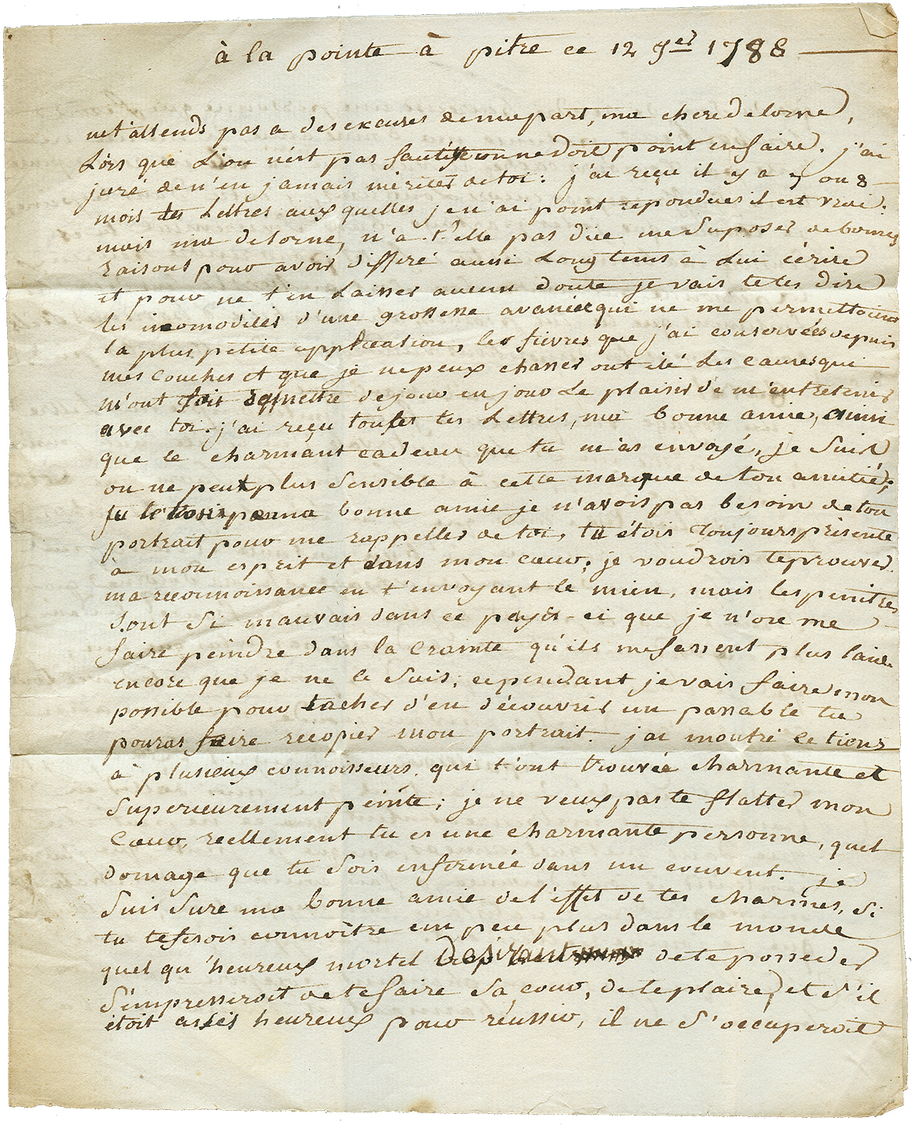 à la pointe à pitre ce 12 7er 1788
ne t'attends pas a des excuses de ma part, ma chere delorne,
Lors que L'on n'est pas fautif on ne doit point en faire. j'ai
juré de n'en jamais mériter de toi: j'ai reçu il y a 7 ou 8
mois tes Lettres aux quelles je n'ai point repondu il est vrai.
mais ma delorne, n'a t'elle pas dûe me suposer de bonnes
raisons pour avoir differé aussi Long tems à Lui écrire
et pour ne t'en Laisser aucun doute je vais te les dire
les incomodités d'une grossesse avancé qui ne me permettoient
la plus petite application, les fievres que j'ai conservées depuis
mes couches et que je ne peux chasser ont été Les causes qui
m'ont fait remettre de jour en jour Le plaisir de m'entretenir
avec toi. j'ai reçu toutes tes Lettres, ma bonne amie, ainsi
que le charmant cadeau que tu m'as envoyé, je suis
on ne peut plus sensible à cette marque de ton amitié;
bonne amie je n'avois pas besoin de ton
portrait pour me rappeller de toi, tu étois toujours présente
à mon esprit et dans mon cœur; je voudrois te prouver
ma reconnoissance en t'envoyant le mien, mais les peintres
sont si mauvais dans ce pays-ci que je n'ose me
faire peindre dans la crainte qu'ils me fassent plus laide
encore que je ne le suis; cependant je vais faire mon
possible pour tacher d'en découvrir un passable tu
pouras faire recopier mon portrait. j'ai montré le tiens
à plusieux connoisseurs qui t'ont trouvée charmante et
superieurement peinte; je ne veux pas te flatter mon
Cœur, réellement tu es une charmante personne, quel
domage que tu sois enfermée dans un couvent. je
suis sure ma bonne amie de l'effet de tes charmes, si
tu te fesois connoître un peu plus dans le monde
quel qu'heureux mortel desirant de te posseder
s'empresseroit de te faire sa cour, de te plaire, et s'il
étoit assés heureux pour réussir, il ne s'occuperoit